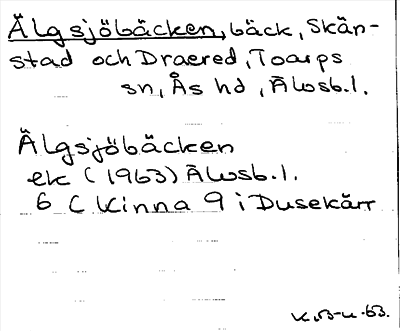 Älgsjöbäcken, bäck, Skän-
stad och Draered, Toarps
sn, Ås hd, Älvsb. l.
Älgsjöbäcken
ek (1963) Älvsb. l.
6 C Kinna 9 i Dusekärr
-63.